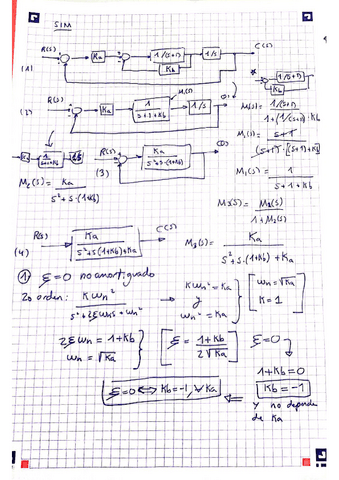 SIM
R(s) Ka 1/(s+1) 1/s C(s)
Kb
(1)
R(s) Ka 1/(s+1+Kb) 1/s
M₁(s)
(2)
1/(s+1)
Kb
M₁(s) = 1/(s+1) / 1+(1/(s+1))·Kb
M₁(s) = 1 / s+1+Kb
R(s) Ka / s²+s·(1+Kb) C(s)
(3)
M₂(s) = Ka / s²+s·(1+Kb)
M₃(s) = M₂(s) / 1+M₂(s)
(4) R(s) Ka / s²+s(1+Kb)+Ka C(s)
M₃(s) = Ka / s²+s·(1+Kb)+Ka
1 ξ=0 no amortiguado
2o orden: K Wn² / s²+2ξWn s+Wn²
K Wn² = Ka
y
Wn² = Ka
Wn = √Ka
K = 1
2ξWn = 1+Kb
Wn = √Ka
ξ = 1+Kb / 2√Ka
ξ=0
1+Kb=0
Kb=-1
y no depende
de Ka
ξ=0 ⟺ Kb=-1, ∀Ka